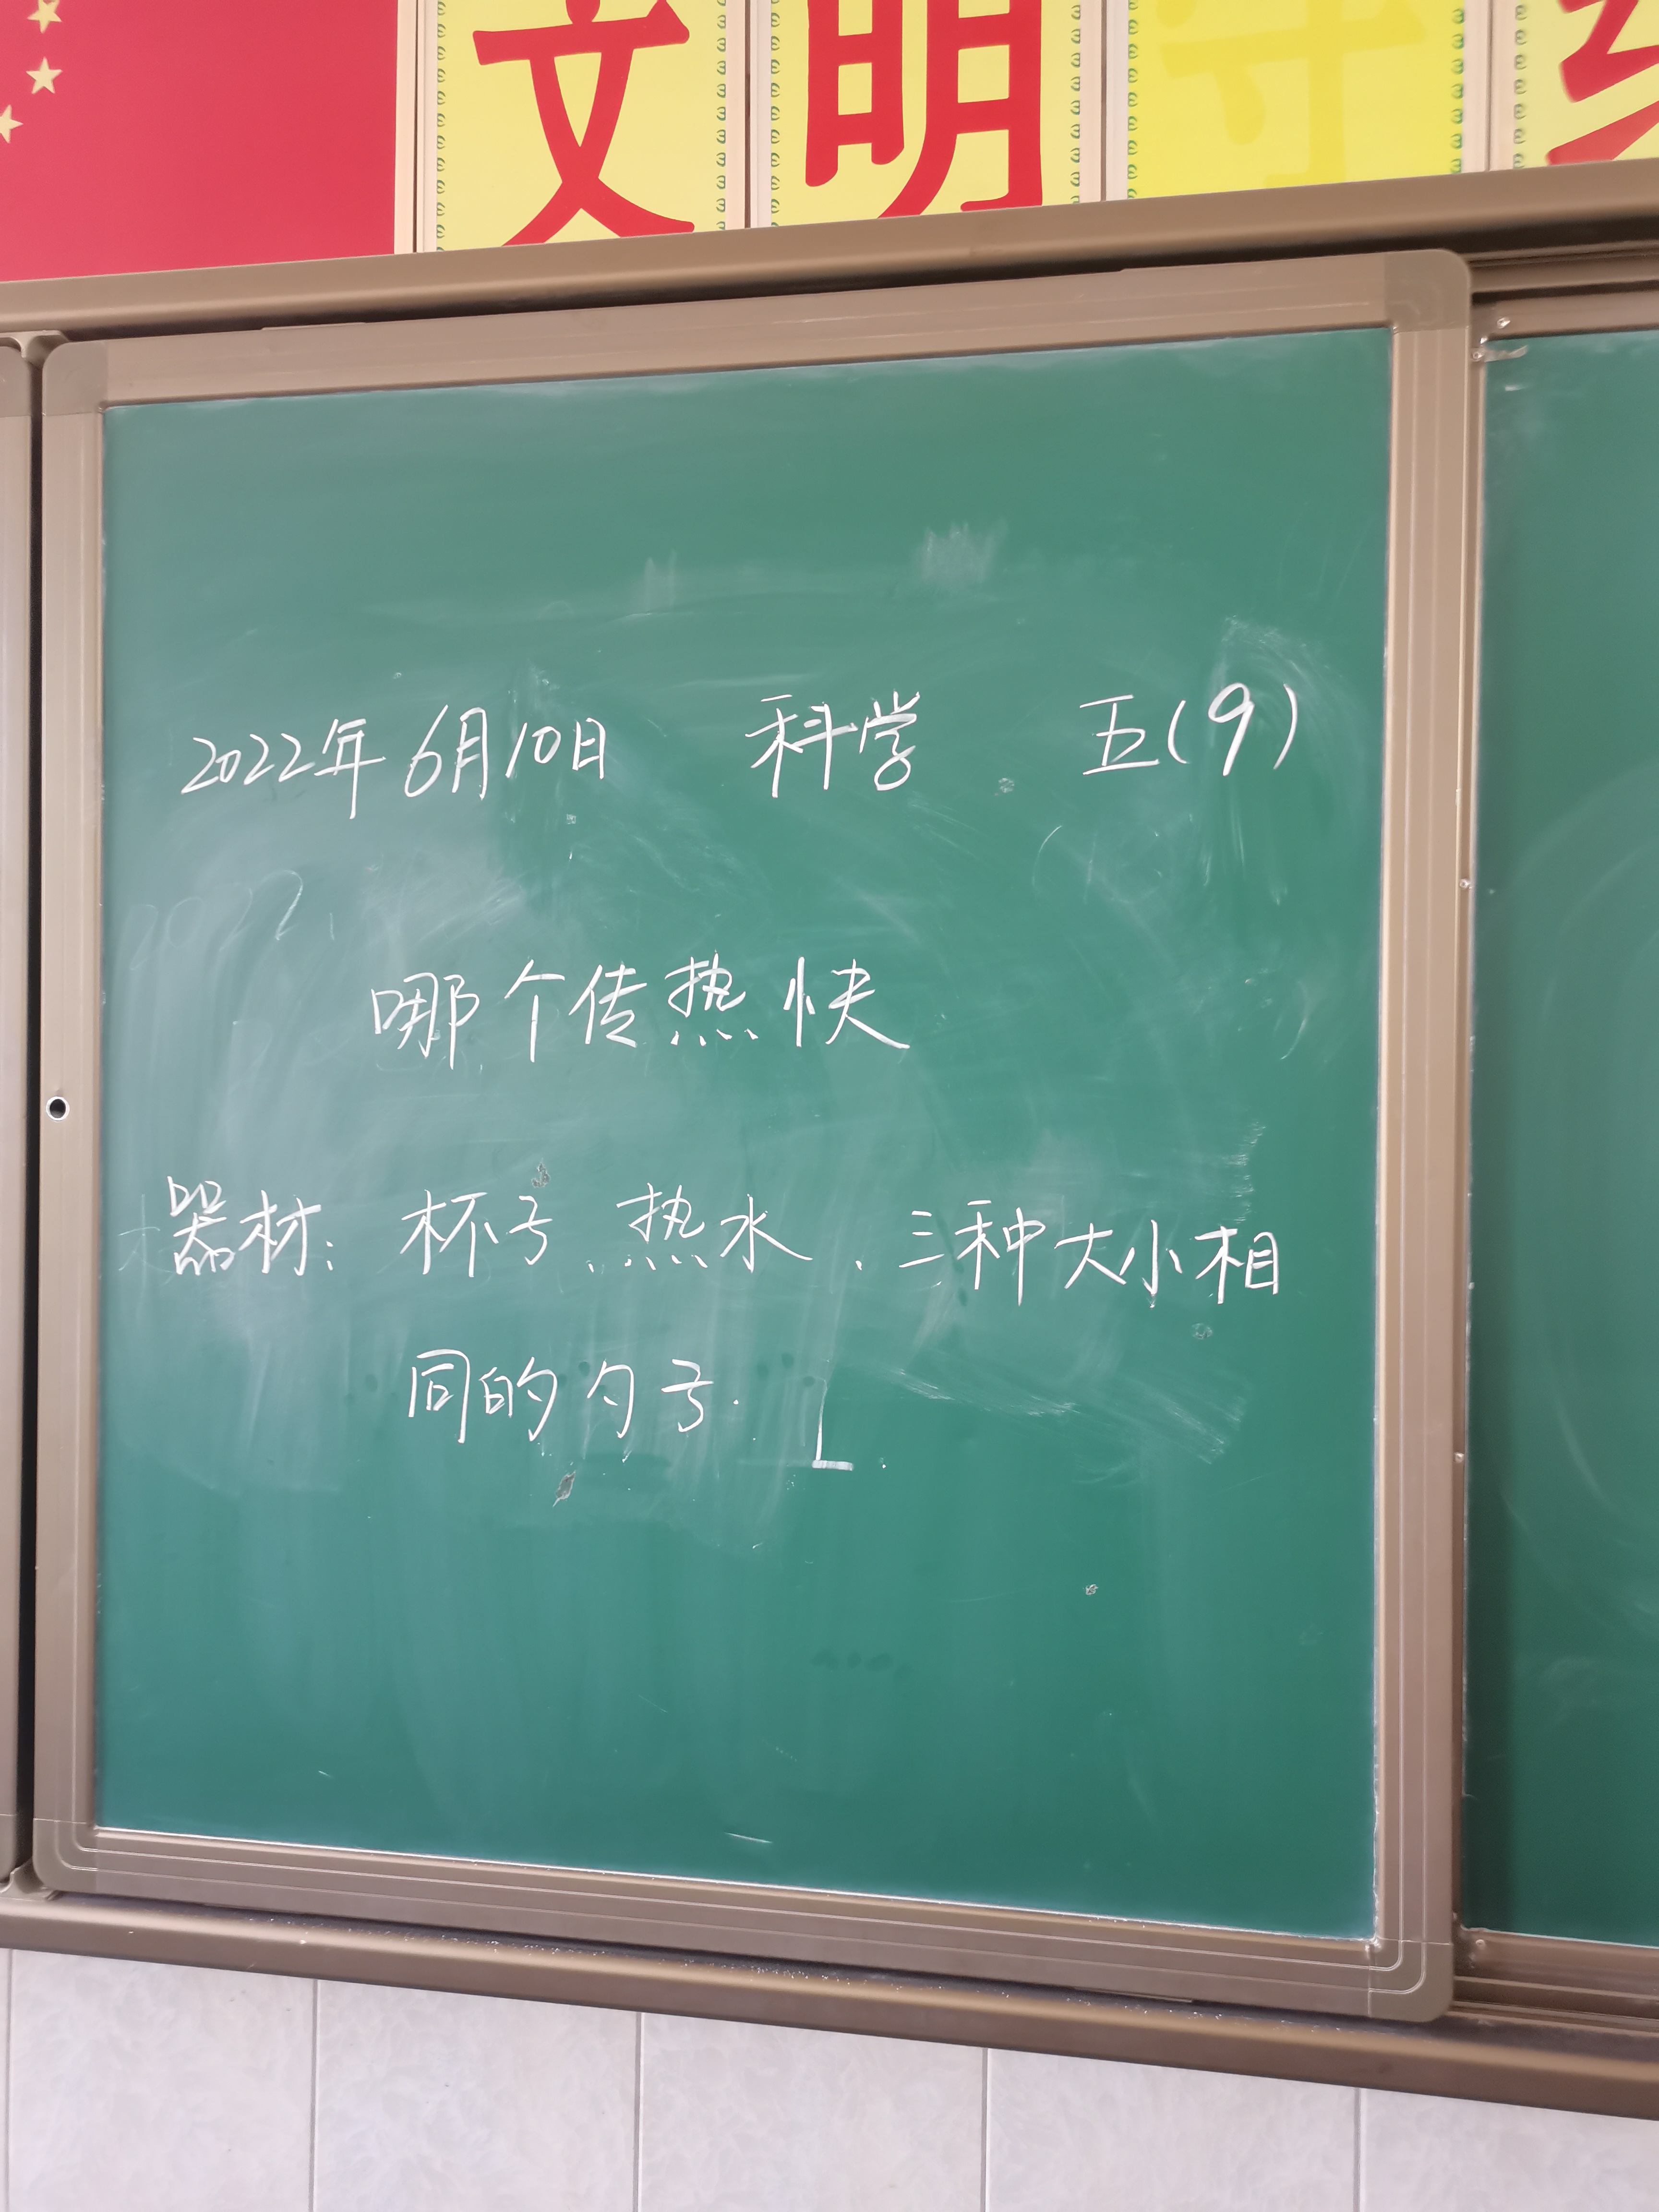 文明守纪
2022年6月10日 科学 五(9)
2022.
哪个传热快
器材: 杯子、热水、三种大小相
同的勺子.